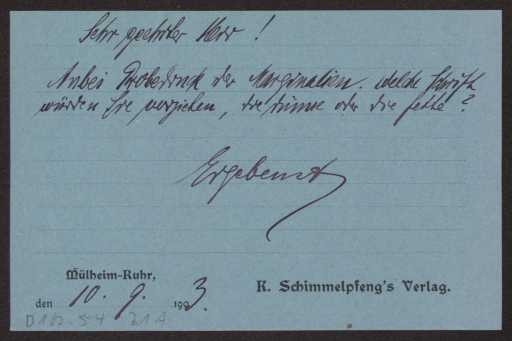 Sehr geehrter Herr!
Anbei Probedruck der Marginalien. welche Schrift
würden Sie vorziehen, die dünne oder die fette?
Ergebenst
Mülheim-Ruhr,
den 10. 9. 1903.
K. Schimmelpfeng's Verlag.